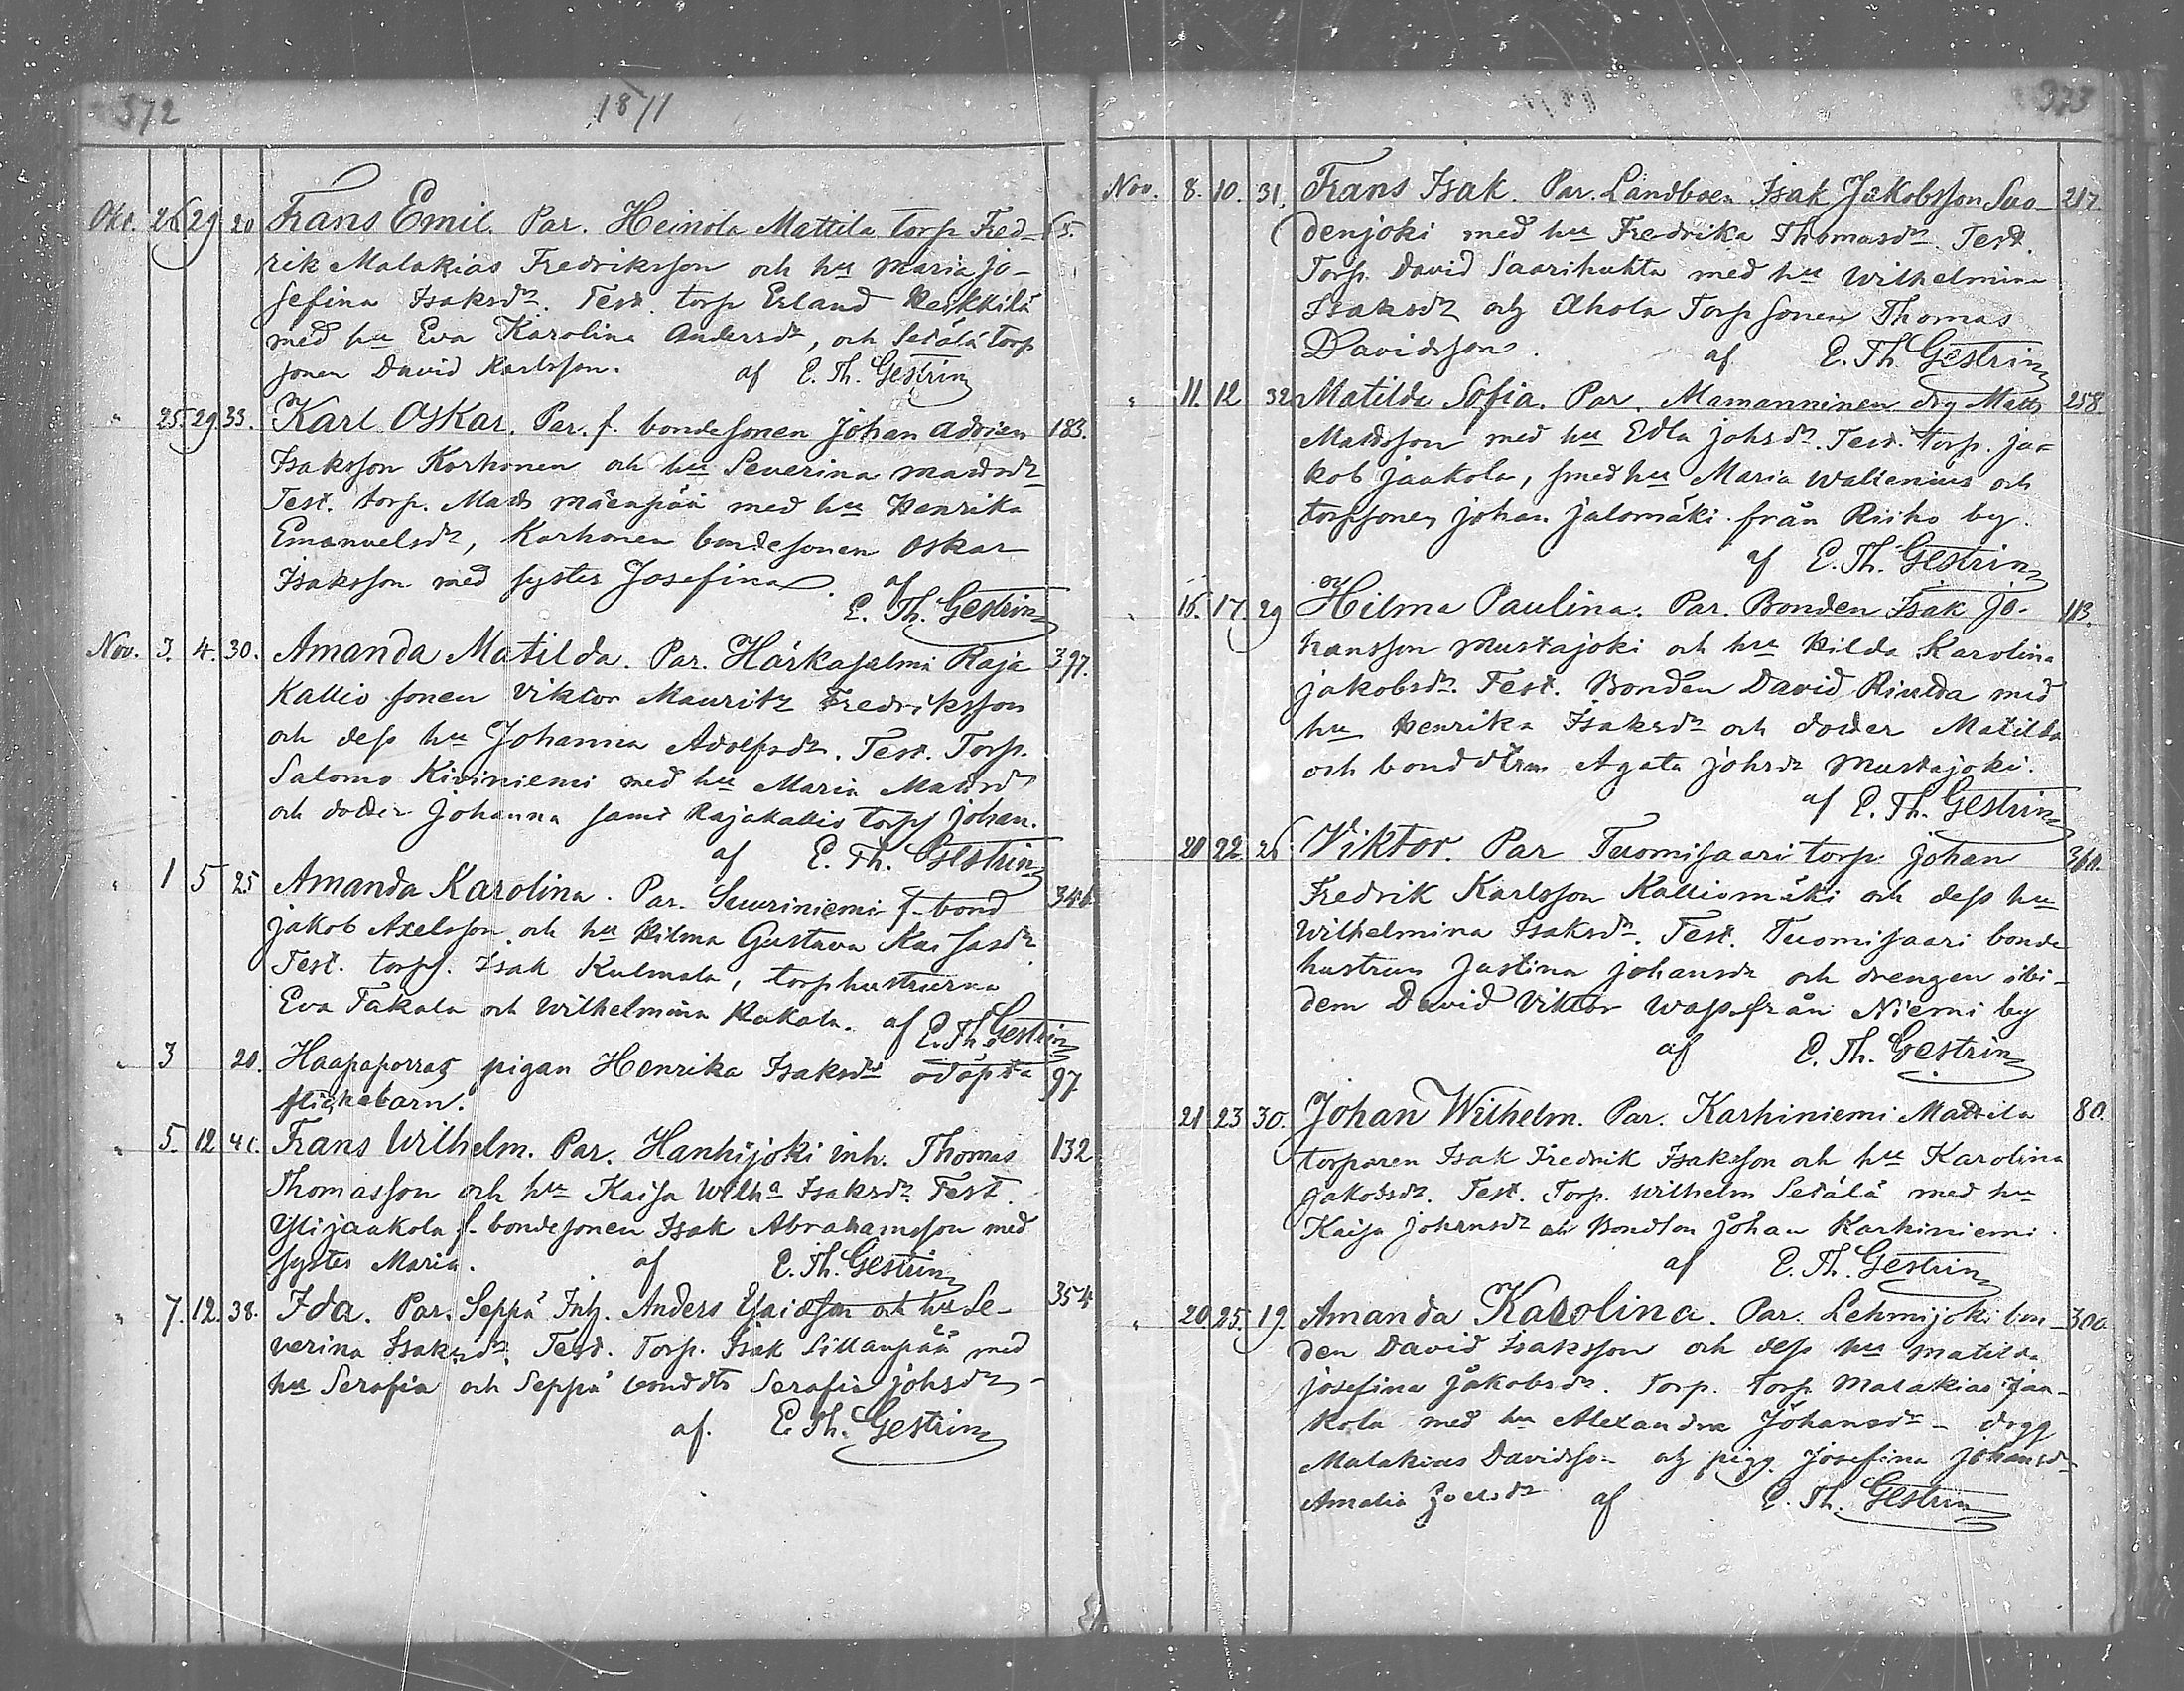 572
1871
Okt. 26 29 20 Frans Emil. Par. Heinola Mattila torp Fred- 65.
rik Malakias Fredriksson och hu Maria Jo-
sefina Isaksdr. Test. torp Erland Heikkilä
med hu Eva Karolina Andersdr, och Setälä torp
sonen David Karlsson. af E. Th. Gestrin
" 25 29 33. Karl Oskar. Par. f. bondesonen Johan Adrian 183.
Isaksson Korhonen och hu Severina Mattsdr
Test. torp. Matts Mäenpää med hu Henrika
Emanuelsdr, Korhonen bondesonen Oskar
Isaksson med syster Josefina. af
E. Th. Gestrin
Nov. 3. 4. 30. Amanda Matilda. Par. Härkäsalmi Raja 397.
Kallio sonen Viktor Mauritz Fredriksson
och dess hu Johanna Adolfsdr. Test. Torp.
Salomo Kiviniemi med hu Maria Mattsdr
och dotter Johanna samt Rajakallio torps Johan.
af E. Th. Gestrin
" 1 5 25 Amanda Karolina. Par. Suuriniemi f. bond 346.
Jakob Axelsson och hu Hilma Gustava
Test. torps. Isak Kulmala, torphustrurna
Eva Takala och Wilhelmina Hakala. af E. Th. Gestrin
" 3 20. Haapaporras pigan Henrika Isaksdr odöpta 97
flickebarn.
" 5. 12 41. Frans Wilhelm. Par. Hanhijoki inh. Thomas 132
Thomasson och hu Kaisa Wilha Isaksdr. Test.
Ylijaakola f. bondesonen Isak Abrahamsson med
syster Maria. af E. Th. Gestrin
" 7. 12. 38. Ida. Par. Seppä Inh. Anders Esaiasson och hu Se- 354
verina Isaksdr. Test. Torp. Isak Sillanpää med
hu Serafia och Seppä bonddtr Serafia Johsdr
af. E. Th. Gestrin
373
Nov. 8. 10. 31. Frans Isak. Par. Landboen Isak Jakobsson Suo- 217.
denjoki med hu Fredrika Thomasdr. Test.
Torp. David Saarihuhta med hu Wilhelmina
Isaksdr och Ahola Torp sonen Thomas
Davidsson. af E. Th. Gestrin
" 11. 12 32. Matilda Sofia. Par. Mamanninen drg Matts 258.
Mattsson med hu Edla Johsdr. Test. torp. Ja-
kob Jaakola, med hu Maria Wallenius och
torpsonen Johan Jalomäki från Riiho by.
af E. Th. Gestrin
" 15. 17. 29 Hilma Paulina. Par. Bonden Isak Jo- 113.
hansson Mustajoki och hu Hilda Karolina
Jakobsdr. Test. Bonden David Rinlda med
hu Henrika Isaksdr och dotter Matilda
och bonddtren Agata Johsdr Mustajoki.
af E. Th. Gestrin
20 22 26 Viktor. Par Tuomisaari torp. Johan 360.
Fredrik Karlsson Kalliomäki och dess hu
Wilhelmina Isaksdr. Test. Tuomisaari bonde
hustrun Justina Johansdr och drengen ibi-
dem David Viktor Wass från Niemi by
af E. Th. Gestrin
21 23 30. Johan Wilhelm. Par. Karhiniemi Mattila 80.
torparen Isak Fredrik Isaksson och hu Karolina
Jakobsdr. Test. Torp. Wilhelm Setälä med hu
Kaisa Johansdr och Bondson Johan Karhiniemi.
af E. Th. Gestrin
" 20. 25. 19. Amanda Karolina. Par. Lehmijoki bon- 300.
den David Isaksson och dess hu Matilda
Josefina Jakobsdr. Torp. Torp. Malakias Jaa-
kola med hu Alexandra Johansdr - drgg
Malakias Davidsson och pigg. Josefina Johansdr
Amalia af E. Th. Gestrin